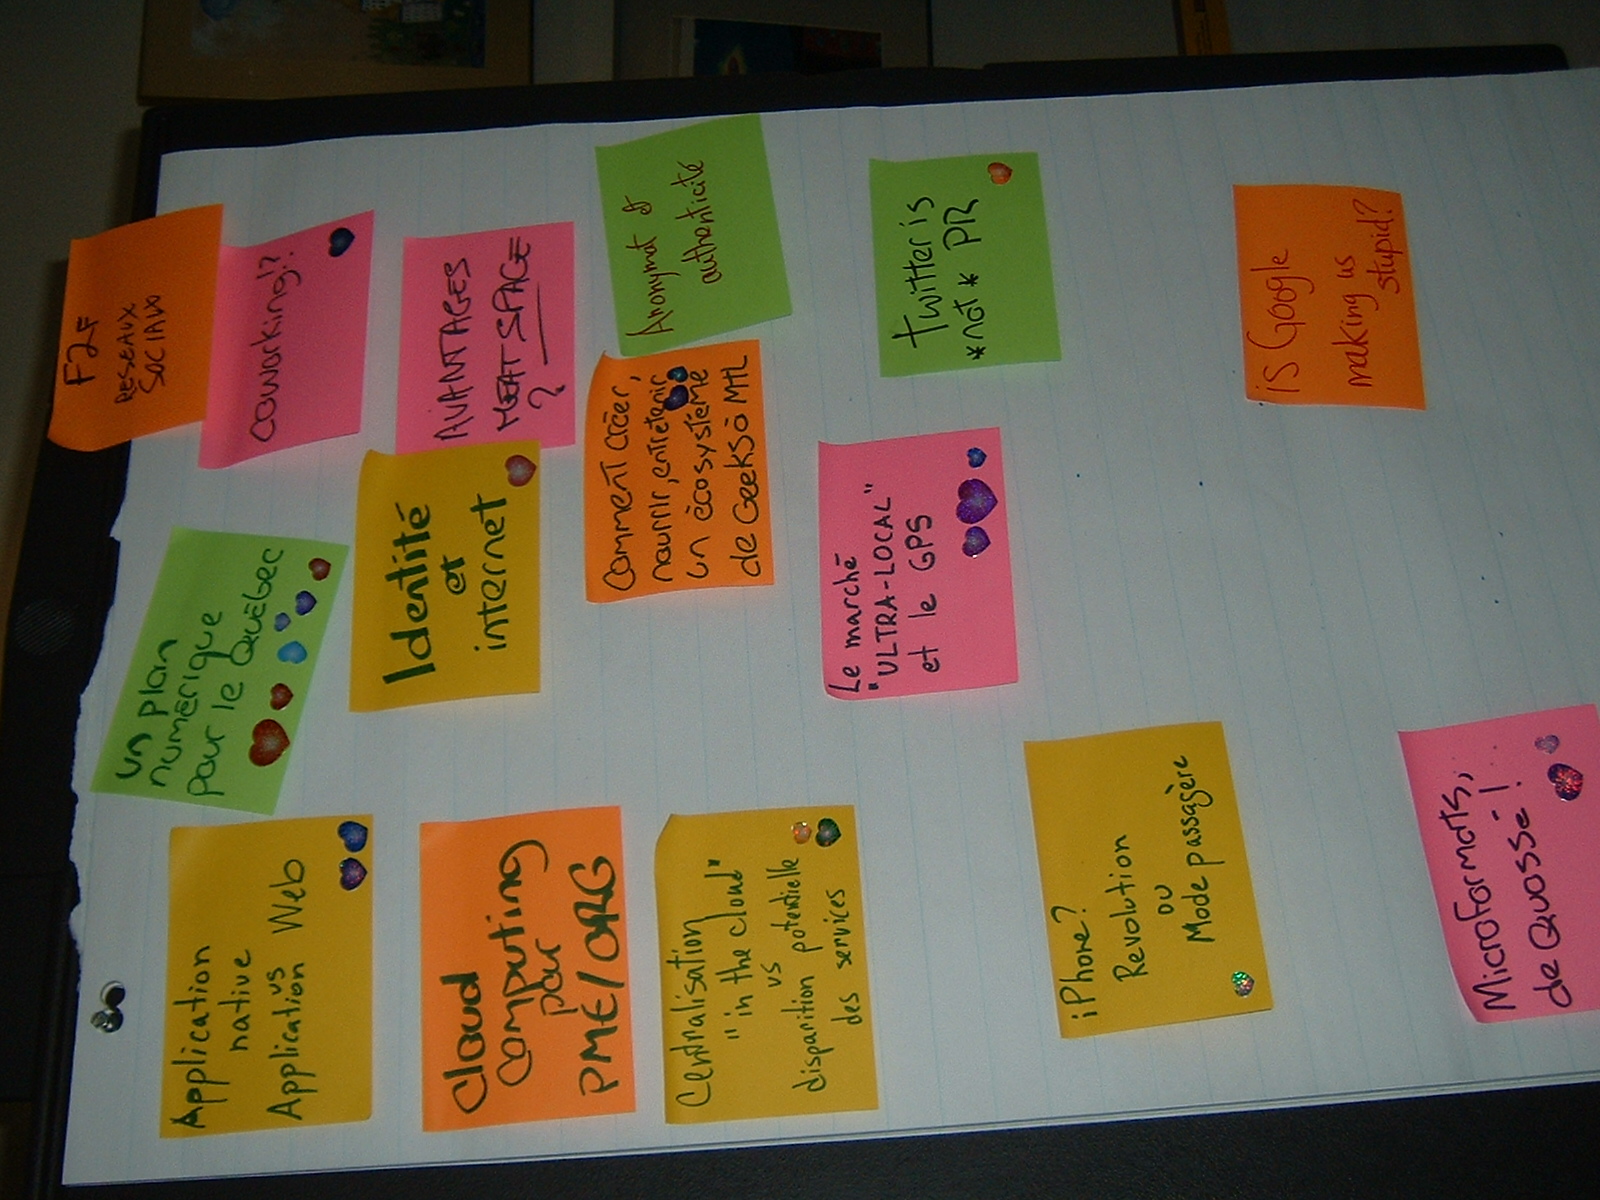 Application
native
vs
Application Web
un plan
numérique
pour le Québec
F2F
RESEAUX
SOCIAUX
coworking!?
Cloud
Computing
pour
PME/ORG
Identité
et
internet
AVANTAGES
MEATSPACE
?
Centralisation
"in the cloud"
vs
disparition potentielle
des services
Comment créer,
nourrir, entretenir
un écosystème
de Geeks à MTL
Anonymat et
authenticité
Le marché
"ULTRA-LOCAL"
et le GPS
twitter is
*not* PR
iPhone?
Revolution
ou
Mode passagère
is Google
making us
stupid?
Microformats,
de Quossé!